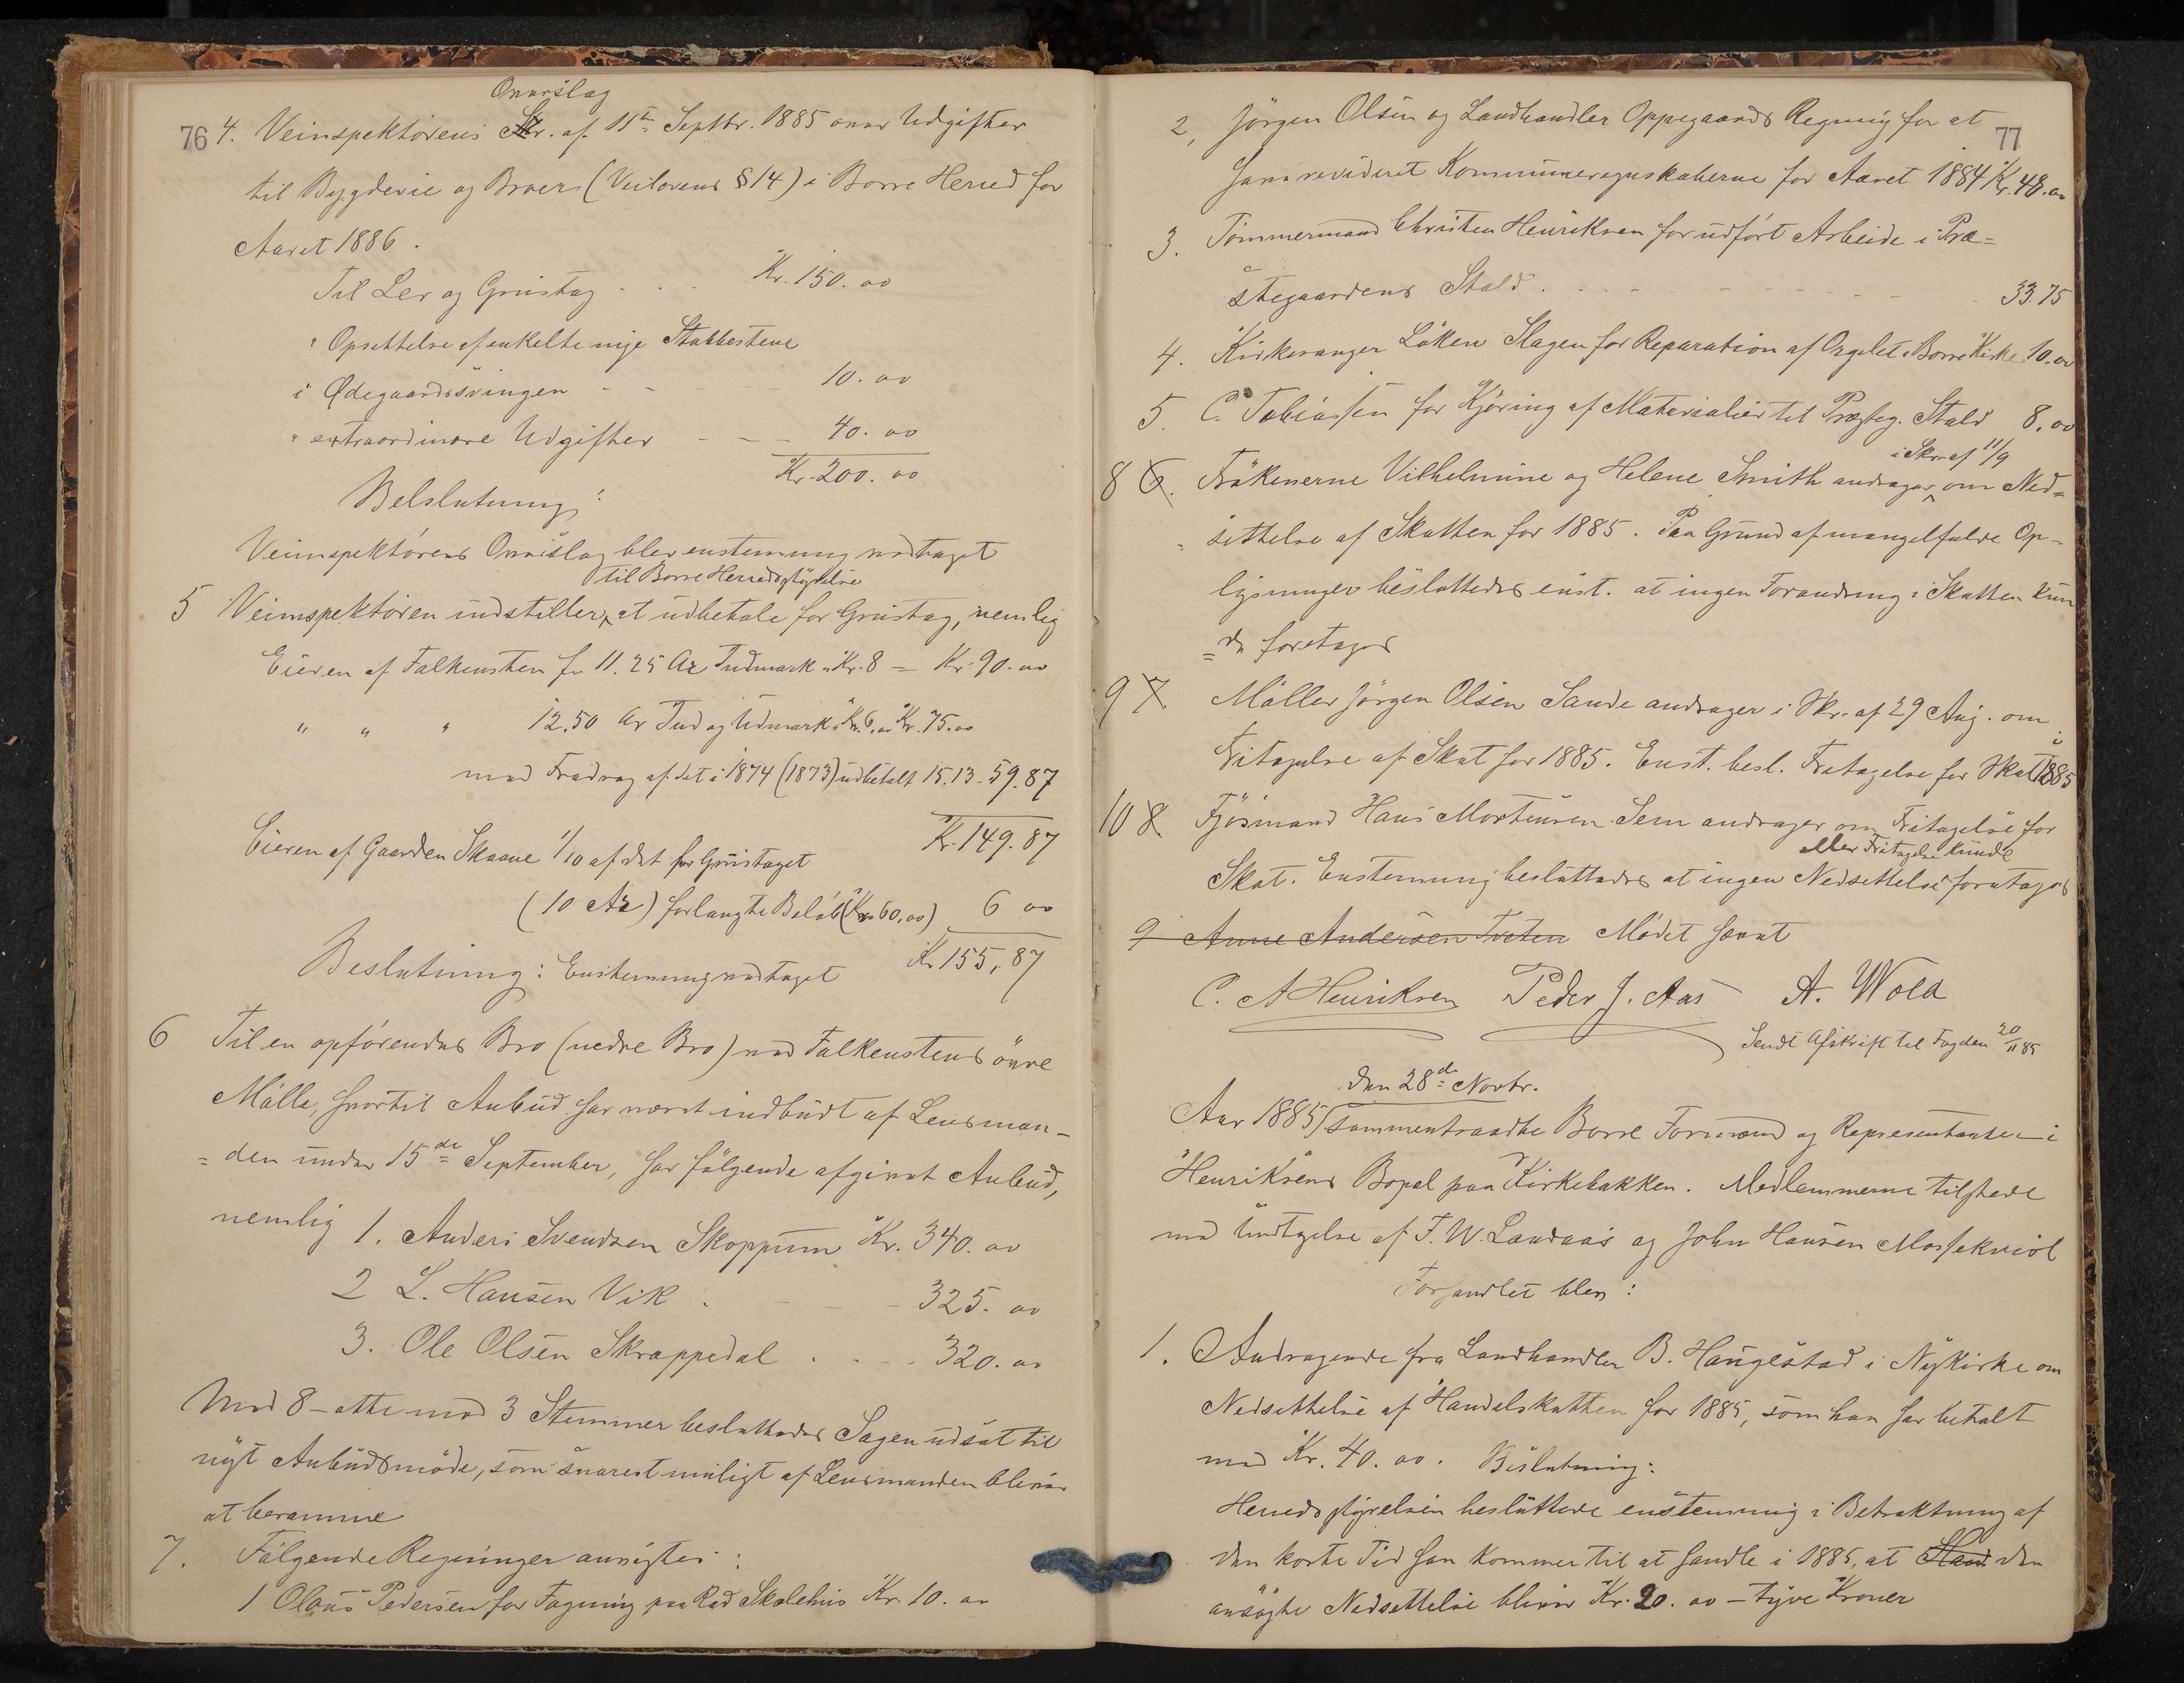 Overslag
76 4. Veinspektörens Skr. af 11te Septbr. 1885 over Udgifter
til Bygdeveie og Broer (Veilovens § 14) i Borre Herred for
Aaret 1886.
Til Ler og Grustag - - - Kr. 150.00
" Opsettelse af enkelte nye Stabbestene
i Ødegaardssvingen - - - 10.00
" extraordinære Udgifter - - - 40.00
Kr. 200.00
Belslutning:
Veinspektörens Overslag blev enstemmig vedtaget
til Borre Herredsstyrelse
5 Veinspektören indstiller, at udbetale for Grustag, nemlig
Eieren af Falkensten for 11.25 Ar Indmark a Kr. 8 = Kr. 90.00
" " " 12.50 Ar Ind og Udmark a Kr. 6.00 Kr. 75.00
med Fradrag af det i 1874 (1873) udbetalt 15.13 - 59.87
Kr. 149.87
Eieren af Gaarden Skaane 1/10 af det for Grustaget
(10 Ar) forlangte Beløb (Kr. 60.00) 6 00
Beslutning: Enstemmig vedtaget Kr 155,87
6 Til en opförendes Bro (nedre Bro) ved Falkenstens övre
Mölle, hvortil Anbud har været indbudt af Lensman-
=den under 15de September, har fölgende afgivet Anbud,
nemlig 1. Anders Svendsen Skoppum Kr. 340.00
2 L. Hansen Vik . - - - 325.00
3. Ole Olsen Skrappedal . . - - 320.00
Med 8 - otte mod 3 Stemmer besluttedes Sagen udsat til
nyt Anbudsmöde, som snarest muligt af Lensmanden bliver
at beramme
7. Fölgende Regninger anvistes:
1 Olaus Pedersen for Tagning paa Rød Skolehus Kr. 10.00
77
2, Jörgen Olsen og Landhandler Oppegaards Regning for at
have revideret Kommuneregnskaberne for Aaret 1884 Kr. 48.00
3. Tömmermand Christen Henriksen for udfört Arbeide i Præ=
stegaardens Stald . - - - 33.75
4. Kirkesanger Löken Slagen for Reparation af Orgelet i Borre Kirke 10.00
5. C. Tobiassen for Kjöring af Materialier til Præsteg. Stald 8.00
i Skr. af 11/9
8 6. Frökenerne Vilhelmine og Helene Smith andrager om Ned=
=settelse af Skatten for 1885. Paa Grund af mangelfulde Op-
lysninger besluttedes enst. at ingen Forandring i Skatten kun
=de foretages
9 7 Möller Jörgen Olsen Sande andrager i Skr. af 29 Aug. om
Fritagelse af Skat for 1885. Enst. besl. Fritagelse for Skat i 1885
10 8 Fjösmand Hans Mortensen Sem andrager om Fritagelse for
eller Fritagelse kunde
Skat. Enstemmig besluttedes at ingen Nedsettelse foretages
9 Anne Andersen Tveten Mødet hævet
C. A Henriksen Peder J. Aas A. Wold
Sendt Afskrift til Fogden 20/11 85
den 28de Novbr.
Aar 1885 sammentraadte Borre Formænd og Repræsentanter i
Henriksens Bopæl paa Kirkebakken. Medlemmerne tilstede
med Undtagelse af F. W. Landaas og John Hansen Mossekviol
Forhandlet blev:
1. Andragende fra Landhandler B. Haugestad i Nykirke om
Nedsettelse af Handelskatten for 1885, som han har betalt
med Kr. 40.00. Beslutning:
Herredsstyrelsen besluttede enstemmig i Betraktning af
den korte Tid han kommer til at handle i 1885, at Hand den
ansögte Nedsettelse bliver Kr. 20.00 - tyve Kroner